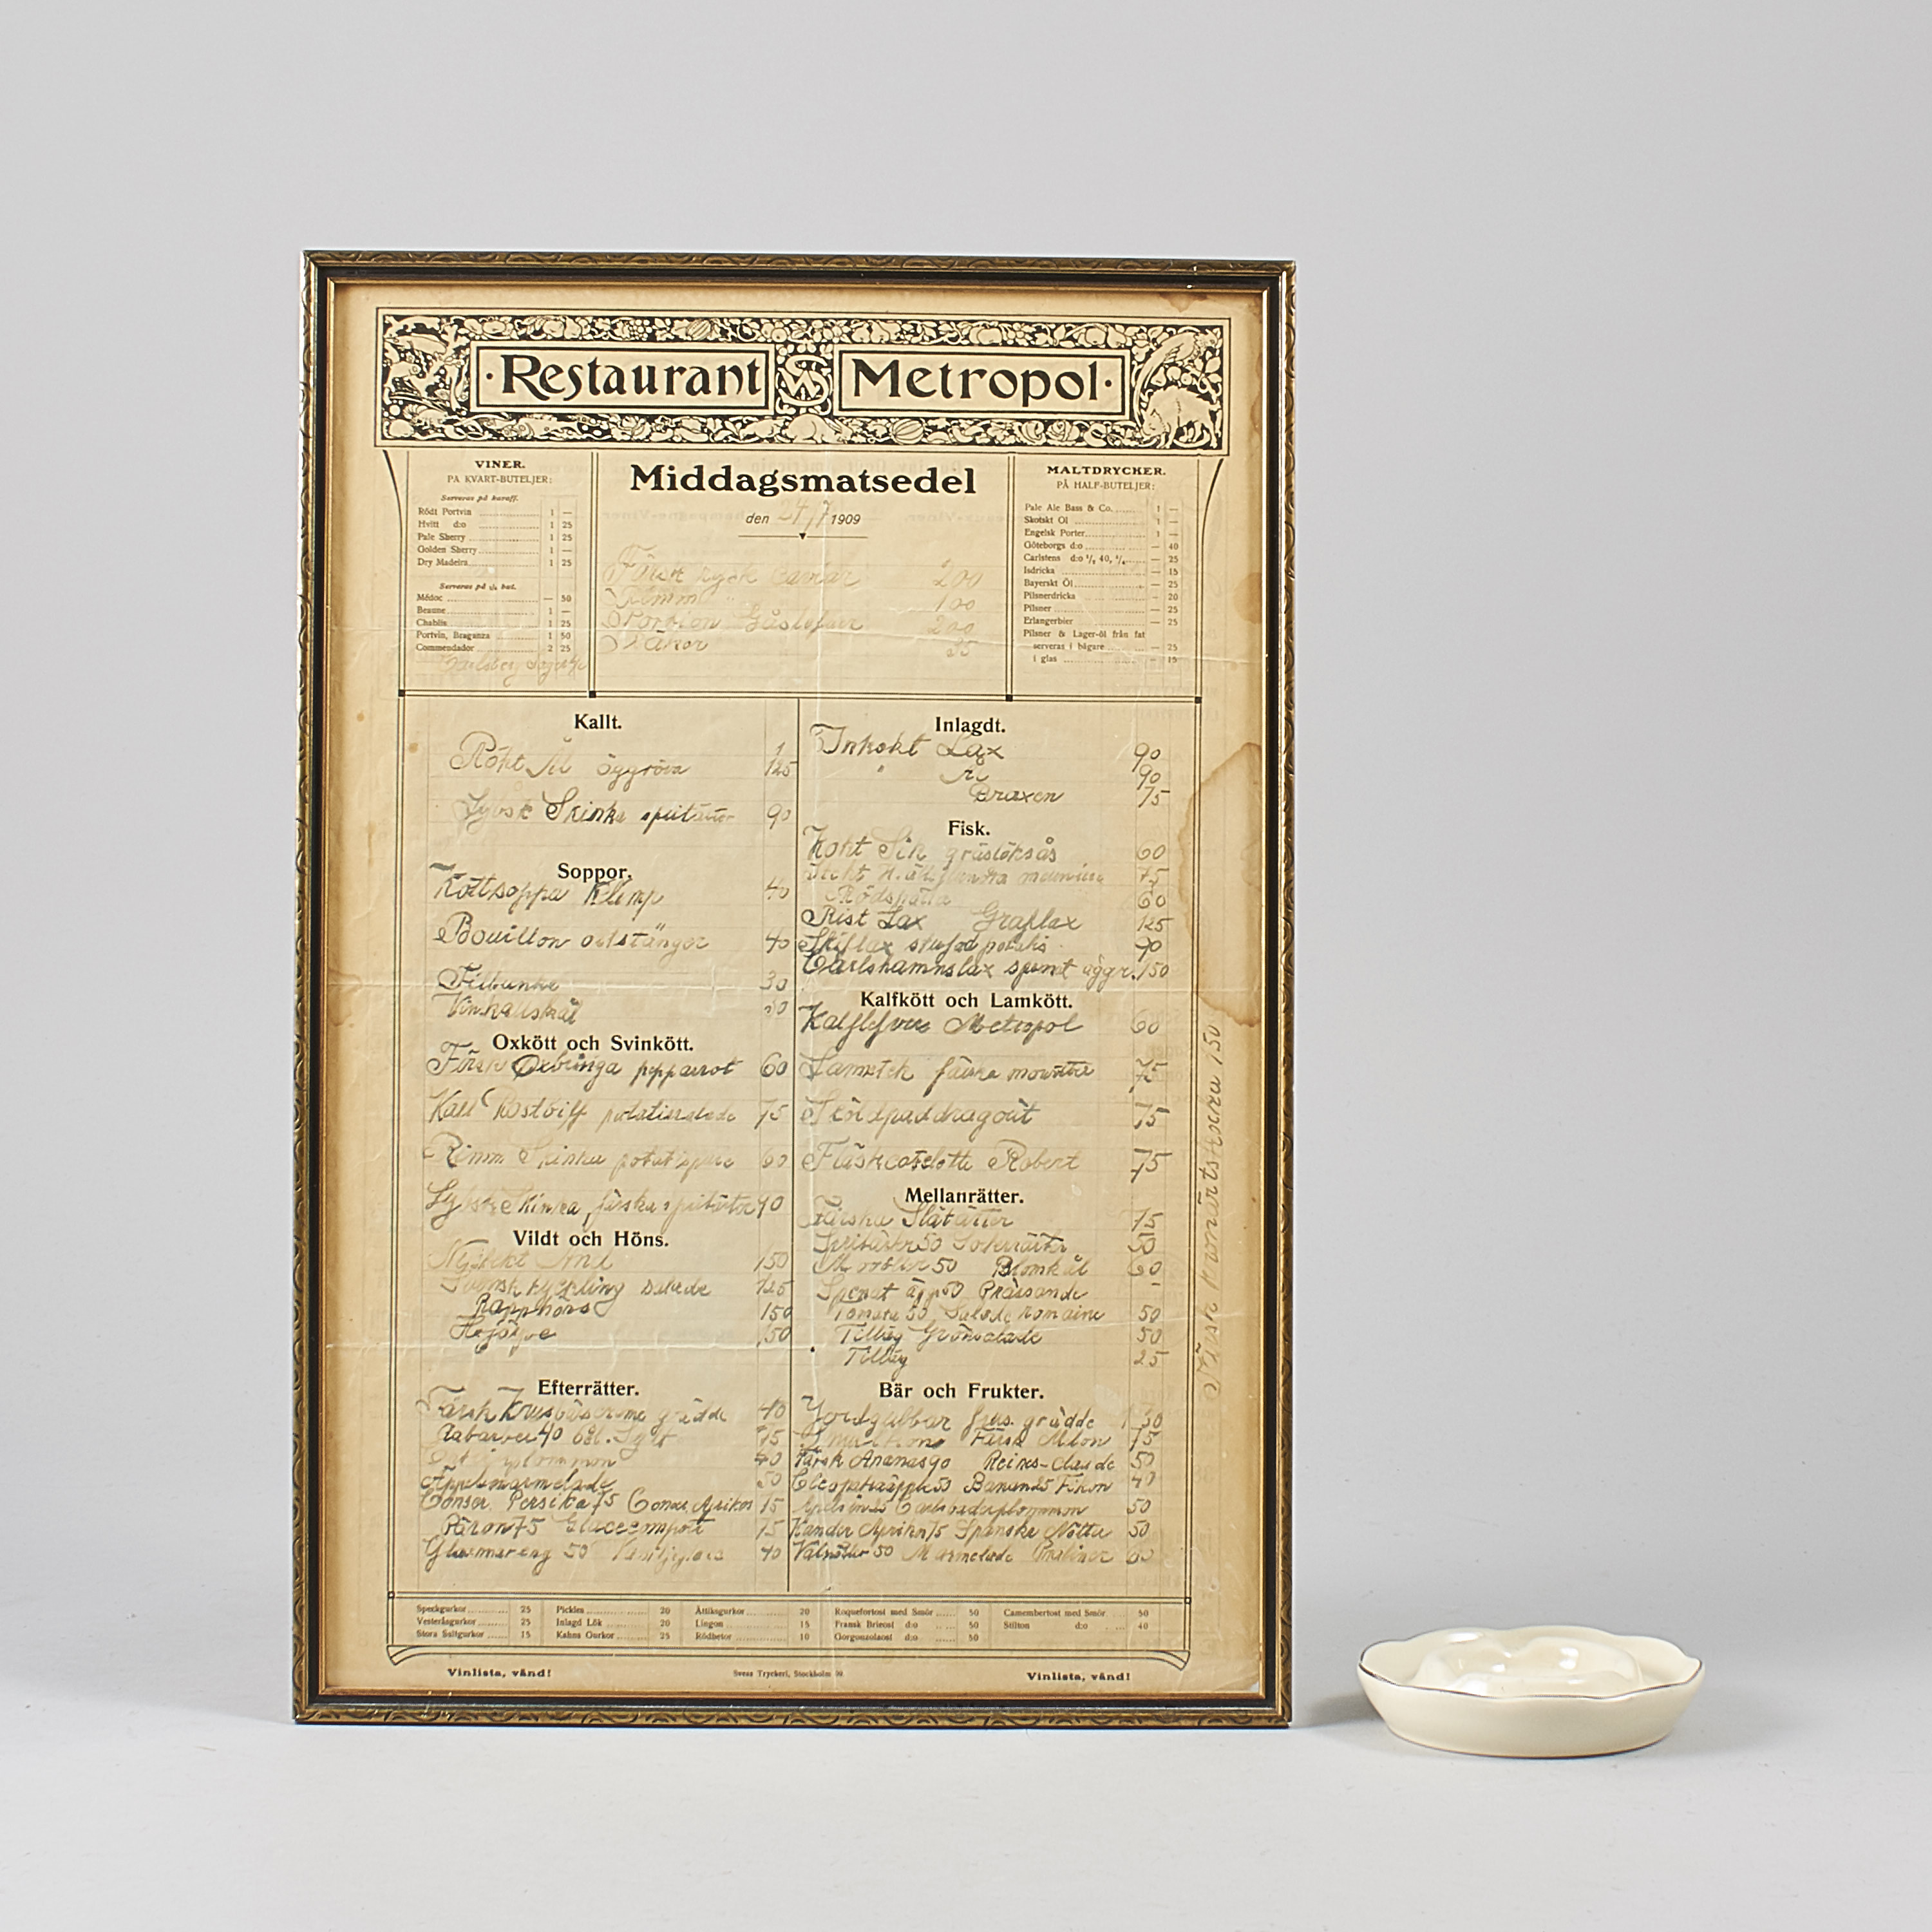 ·Restaurant Metropol·
VINER.
PA KVART-BUTELJER:
Serveras på karaff.
Rödt Portvin 1 —
Hvitt d:o 1 25
Pale Sherry 1 25
Golden Sherry 1 —
Dry Madeira 1 25
Serveras på ¼ but.
Médoc — 50
Beaune 1 —
Chablis 1 25
Portvin, Braganza 1 50
Commendador 2 25
Carlsberg
Middagsmatsedel
den 24/7 1909
Färsk rysk caviar 200
100
Portion Gåslefver 200
35
MALTDRYCKER.
PÅ HALF-BUTELJER:
Pale Ale Bass & Co. 1 —
Skotskt Öl 1 —
Engelsk Porter 1 —
Göteborgs d:o — 40
Carlstens d:o — 25
Isdricka — 15
Bayerskt Öl — 25
Pilsnerdricka — 20
Pilsner — 25
Erlangerbier — 25
Pilsner & Lager-öl från fat
serveras i bägare — 25
i glas — 15
Kallt.
Rökt Ål äggröra 125
Lybsk Skinka 90
Soppor.
Köttsoppa Klimp 40
Bouillon oststänger 40
Filbunke 30
Vinkallskål
Oxkött och Svinkött.
Färsk Oxbringa pepparrot 60
Kall Rostbiff potatissalade 75
Rimm Skinka 60
Lybsk Skinka, färska 90
Vildt och Höns.
And 150
Svensk Kyckling salade 125
Rapphöns 150
150
Efterrätter.
Färsk Krusbärscreme grädde 40
Rabarber 40 75
40
Äppelmarmelade 50
Conser. Persika 75 Conser Aprikos 75
Päron 75 Glacecompott 75
Glacemareng 50 40
Inlagdt.
Inkokt Lax 90
" Ål 90
Braxen 75
Fisk.
Kokt Sik gräslöksås 60
Stekt 75
Rödspätta 60
Rist Lax Graflax 125
Skiflax stufad potatis 90
Carlshamnslax spenat äggr. 150
Kalfkött och Lamkött.
Kalflefver Metropol 60
Lamstek färska 75
Sköldpaddragout 75
Fläskcotelette Robert 75
Mellanrätter.
Färska 75
50 Sockerärter 50
Morötter 50 Blomkål 60
Spenat ägg 50
Tomate 50 Salade romaine 50
Tillåg Grönsalade 50
Tillåg 25
Bär och Frukter.
Jordgubbar grädde
Färsk Melon 75
Färsk Ananas 90 Reines-claude 50
Cleopatraäpple 50 Banan 25 Fikon 40
Apelsin 25 Carlsbaderplommon 50
Kander Aprikos 75 Spanska Nötter 50
Valnötter 50 Marmelade Praliner 60
Färsk Kronärtskocka 150
Speckgurkor 25
Vesteråsgurkor 25
Stora Saltgurkor 15
Pickles 20
Inlagd Lök 20
Kahns Gurkor 25
Ättiksgurkor 20
Lingon 15
Rödbetor 10
Roquefortost med Smör 50
Fransk Brieost d:o 50
Gorgonzolaost d:o 50
Camembertost med Smör 50
Stilton d:o 40
Vinlista, vänd!
Svens Tryckeri, Stockholm 09.
Vinlista, vänd!